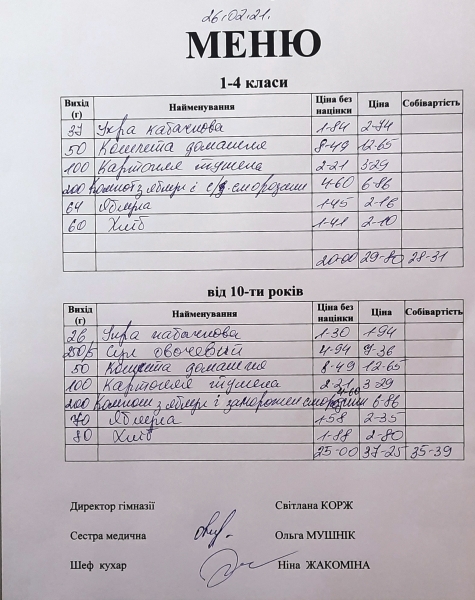 26.02.21.
МЕНЮ
1-4 класи
Вихід (г) Найменування Ціна без націнки Ціна Собівартість
37 Ікра кабачкова 1-84 2-74
50 Котлета домашня 8-49 12-65
100 Картопля тушена 2-21 3-29
200 Компот з яблук і с/з смородини 4-60 6-86
64 Яблука 1-45 2-16
60 Хліб 1-41 2-10
20-00 29-80 28-31
від 10-ти років
Вихід (г) Найменування Ціна без націнки Ціна Собівартість
26 Ікра кабачкова 1-30 1-94
250/5 Суп овочевий 4-94 7-36
50 Котлета домашня 8-49 12-65
100 Картопля тушена 2-21 3-29
200 Компот з яблук і заморожен смородини 4-60 6-86
70 Яблука 1-58 2-35
80 Хліб 1-88 2-80
25-00 37-25 35-39
Директор гімназії Світлана КОРЖ
Сестра медична Ольга МУШНІК
Шеф кухар Ніна ЖАКОМІНА